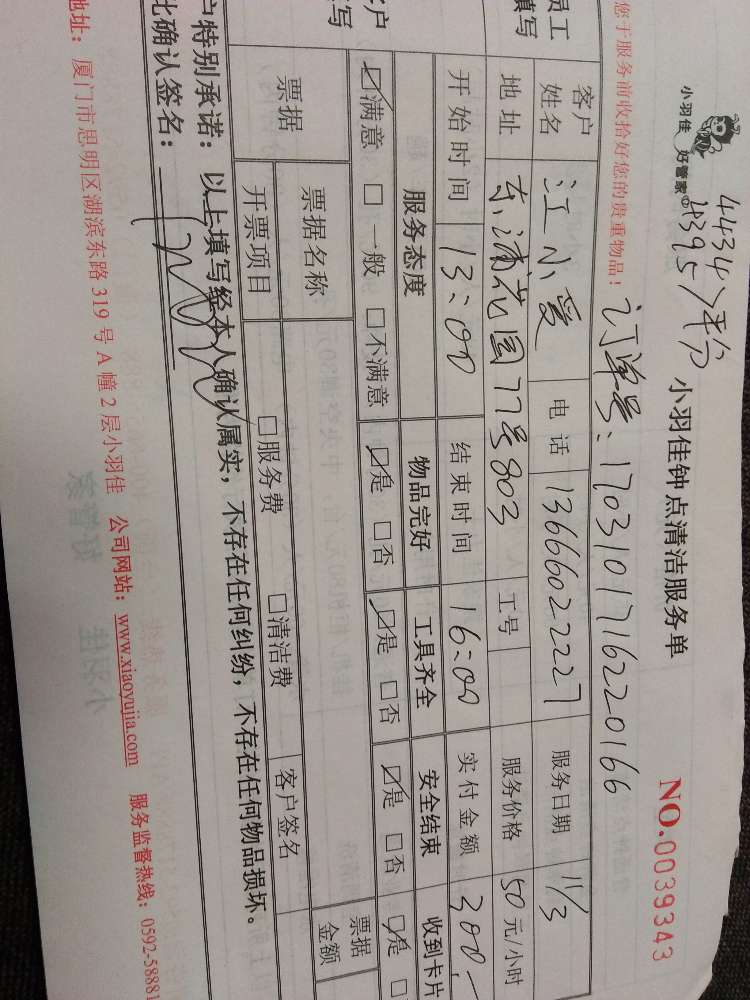 小羽佳 好管家
4434
4395 >平分
小羽佳钟点清洁服务单
NO.0039343
您于服务前收拾好您的贵重物品!
订单号:1703101716220166
员工
填写
客户
姓名 江小爱 电话 13666022227 服务日期 11/3
地址 东浦花园77号803 工号 服务价格 50元/小时
开始时间 13:00 结束时间 16:00 实付金额 300.-
客户
填写
服务态度 物品完好 工具齐全 安全结束 收到卡片
☑满意 □一般 □不满意 ☑是 □否 ☑是 □否 ☑是 □否 ☑是 □
票据 票据名称 票据
金额
开票项目 □服务费 □清洁费 客户签名
户特别承诺:以上填写经本人确认属实,不存在任何纠纷,不存在任何物品损坏。
此确认签名:
地址:厦门市思明区湖滨东路319号A幢2层小羽佳 公司网站:www.xiaoyujia.com 服务监督热线:0592-58881